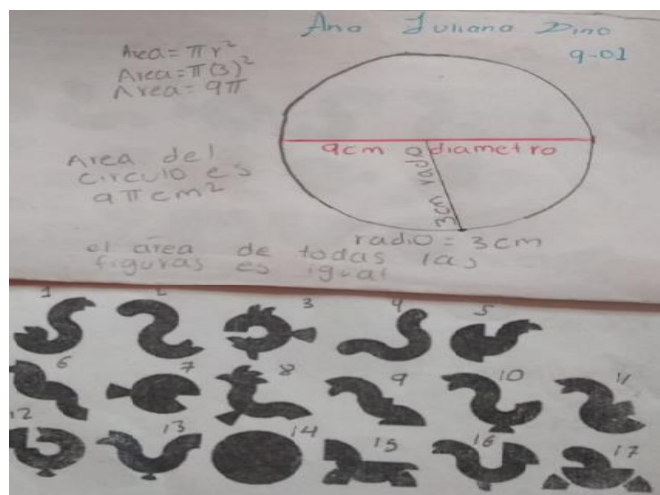 Ana Juliana Dino
9-01
Area = πr²
Area = π(3)²
Area = 9π
9cm diametro
3cm radio
Area del
circulo es
9π cm²
radio = 3 cm
el área de todas las
figuras es igual
1 2 3 4 5
6 7 8 9 10 11
12 13 14 15 16 17